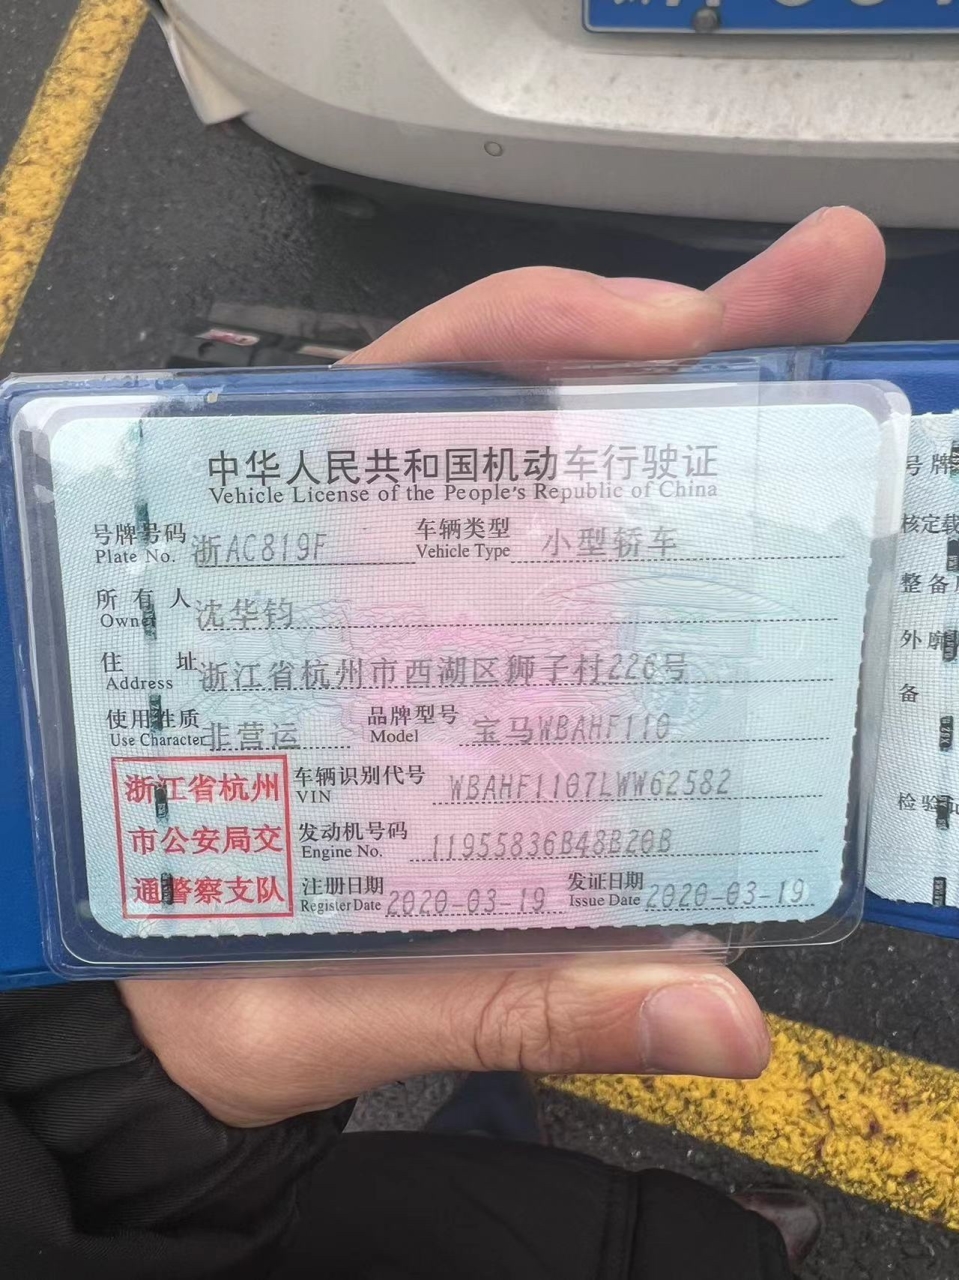 中华人民共和国机动车行驶证
Vehicle License of the People's Republic of China
号牌号码 浙AC819F 车辆类型 小型轿车
Plate No. Vehicle Type
所有人 沈华钧
Owner
住址 浙江省杭州市西湖区狮子村226号
Address
使用性质 非营运 品牌型号 宝马WBAHF110
Use Character Model
浙江省杭州
市公安局交
通警察支队
车辆识别代号 WBAHF1107LWW62582
VIN
发动机号码 11955836B48B20B
Engine No.
注册日期 2020-03-19 发证日期 2020-03-19
Register Date Issue Date
号牌
核定载
整备
外廓
备
检验